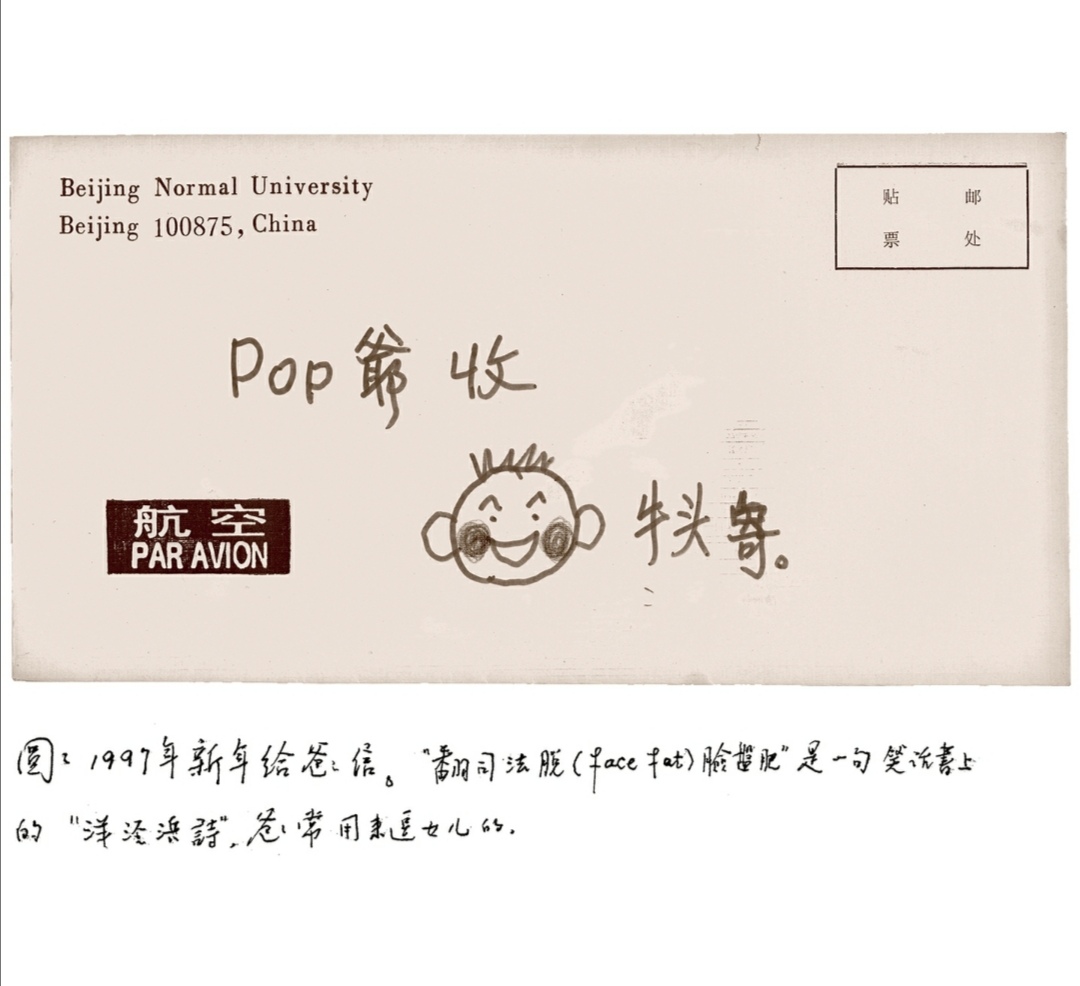 Beijing Normal University
Beijing 100875, China
贴 邮
票 处
Pop爺 收
航空
PAR AVION
牛头寄。
圖：1997年新年给爸爸信。“翻司法脱(face fat)臉盤肥”是一句笑话書上
的“洋泾浜詩”，爸爸常用来逗女儿的.